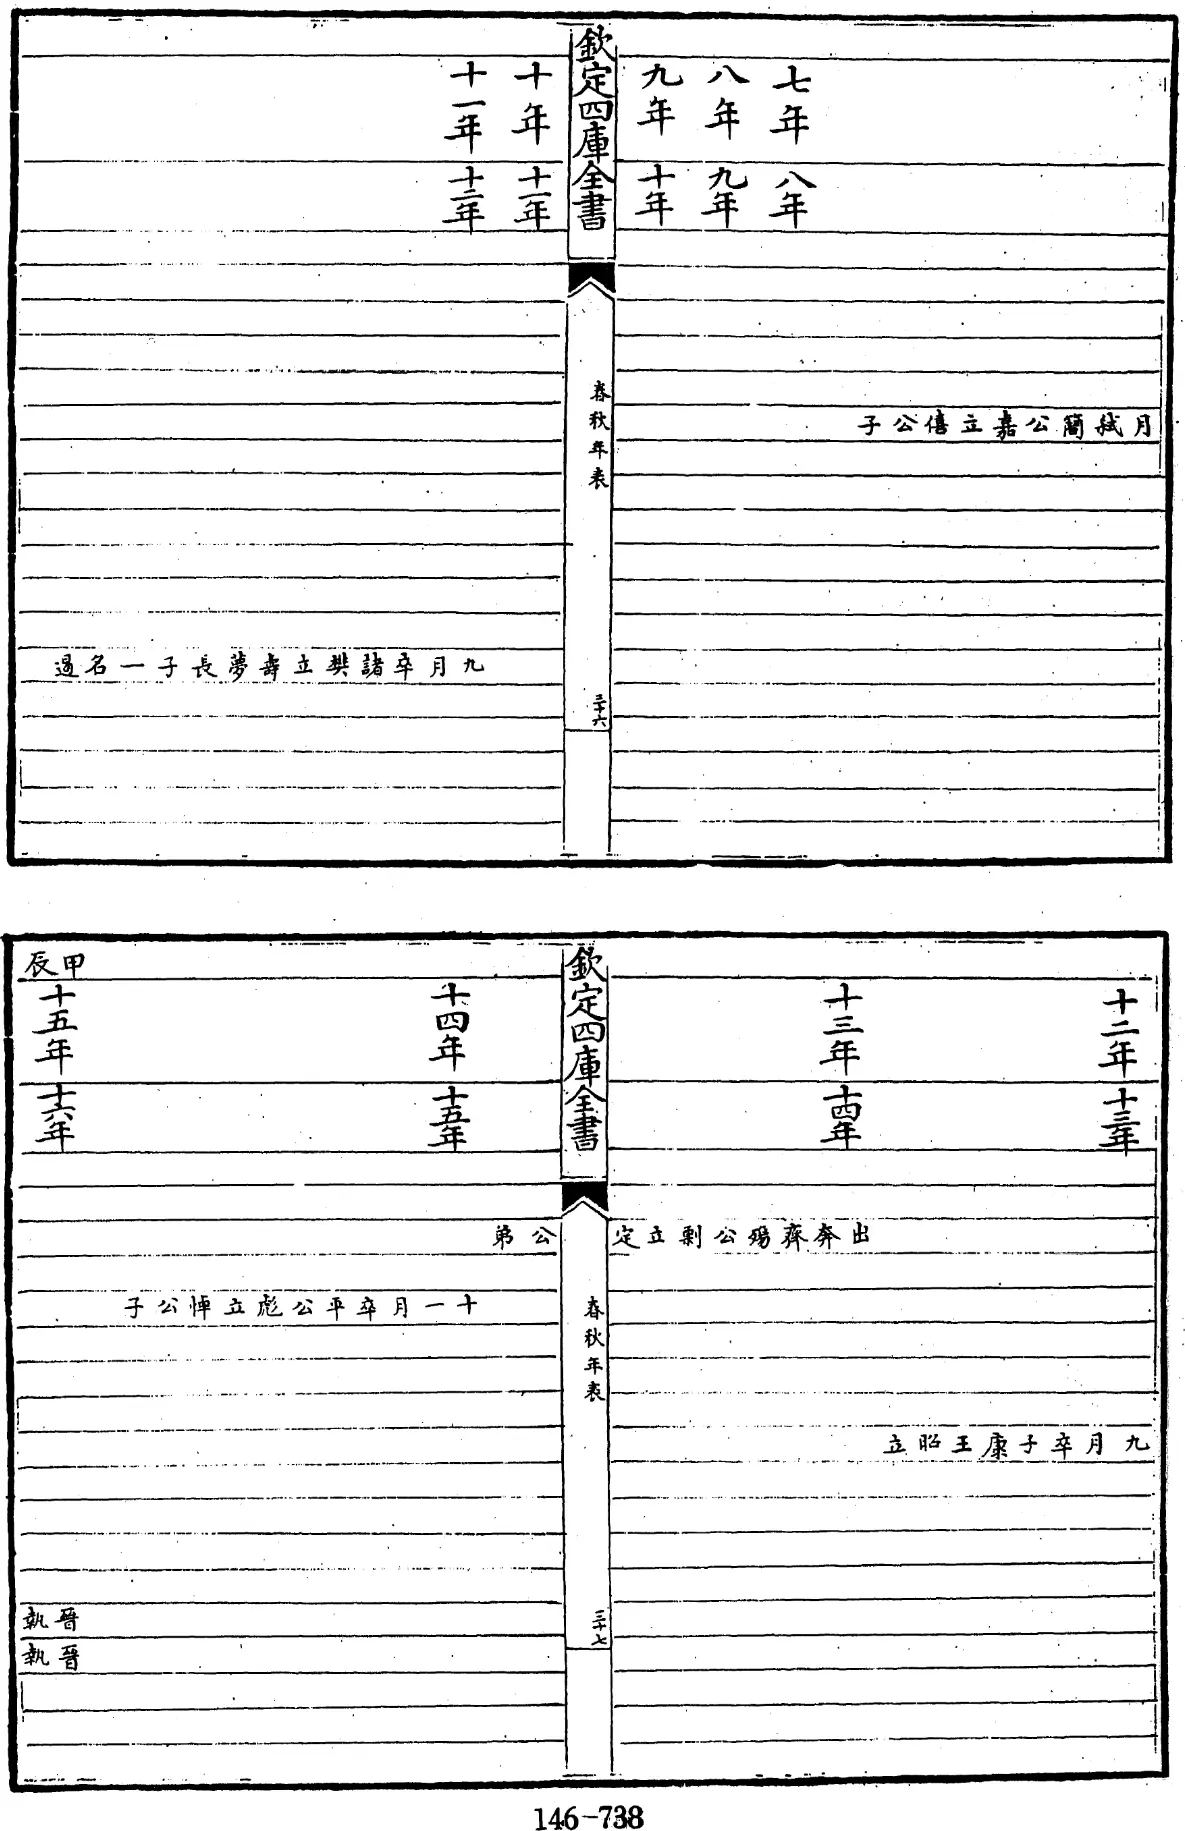 七年
八年
九年
八年
九年
十年
月弑簡公嘉立僖公子
欽定四庫全書
春秋年表
三十六
十年
十一年
十一年
十二年
九月卒諸樊立壽夢長子一名遏
十二年
十三年
十三年
十四年
出奔齊殤公剽立定
九月卒子康王昭立
欽定四庫全書
春秋年表
三十七
甲辰
十四年
十五年
十五年
十六年
公弟
十一月卒平公彪立悼公子
晉執
晉執
146-738